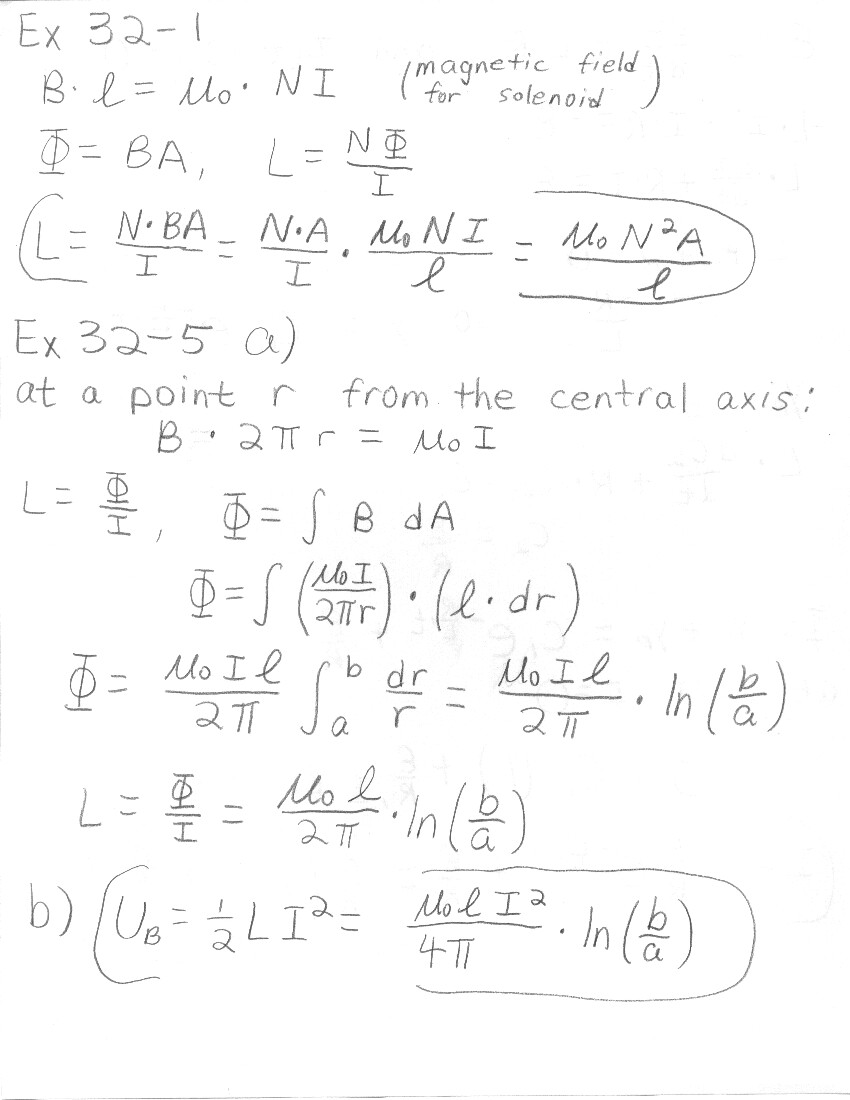 Ex 32-1
B·ℓ = μ₀·NI (magnetic field for solenoid)
Φ = BA, L = NΦ/I
L = N·BA/I = N·A/I · μ₀NI/ℓ = μ₀N²A/ℓ
Ex 32-5 a)
at a point r from the central axis:
B · 2πr = μ₀I
L = Φ/I, Φ = ∫ B dA
Φ = ∫ (μ₀I/2πr) · (ℓ · dr)
Φ = μ₀Iℓ/2π ∫ₐᵇ dr/r = μ₀Iℓ/2π · ln(b/a)
L = Φ/I = μ₀ℓ/2π · ln(b/a)
b) U_B = 1/2 LI² = μ₀ℓI²/4π · ln(b/a)